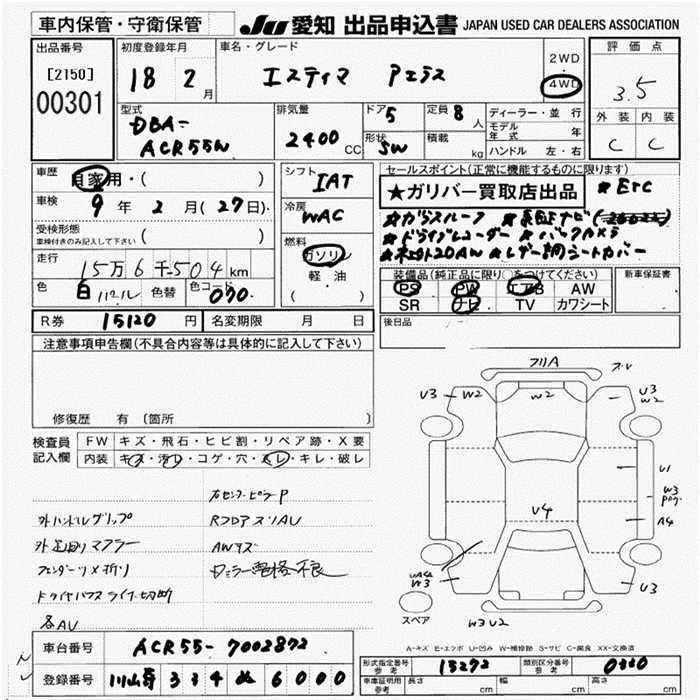 車内保管・守衛保管
JU 愛知 出品申込書 JAPAN USED CAR DEALERS ASSOCIATION
出品番号
[2150]
00301
初度登録年月
18 2月
車名・グレード
エスティマ アエラス
2WD
・
4WD
評価点
3.5
外装 内装
C C
型式
DBA-
ACR55W
排気量
2400CC
ドア 5
形状 SW
定員 8人
積載 kg
ディーラー・並行
モデル年式 年
ハンドル 左・右
車歴
自家用・( )
車検
9年 2月 (27日)
受検形態
車検付きのみ記入して下さい ( )
走行
15万6千504km
色 白パール 色替 色コード 070
シフト
IAT
冷房
WAC
燃料
ガソリン
軽・油
( )
セールスポイント(正常に機能するものに限ります)
★ガリバー買取店出品 ★ETC
★ガラスルーフ ★純正ナビ
★ドライブレコーダー ★バックカメラ
★社外20AW ★レザー調シートカバー
装備品(純正品に限り○をつけてください)
PS PW エアB AW
SR ナビ TV カワシート
新車保証書
R券 15120円 名変期限 月 日
後日品
注意事項申告欄(不具合内容等は具体的に記入して下さい)
修復歴 有 (箇所 )
検査員
記入欄
FW キズ・飛石・ヒビ割・リペア跡・X要
内装 キズ・汚レ・コゲ・穴・スレ・キレ・破レ
右センターピラーP
外ハンドルグリップ RフロアスリAU
外足廻りマフラー AWキズ
フェンダーツメ折リ Dミラー電格不良
ドライナハウスライナー切断
各AU
フリA
U3 W2 W2 U3
W2
U1
W3
A4
U4
W3
U3
W3 U2
スペア
A-キズ E-エクボ U-凹み W-補修跡 S-サビ C-腐食 XX-交換済
車台番号 ACR55-7002872
登録番号 川崎 334 ぬ 6000
形式指定番号 参考 15272 類別区分番号 参考 0330
車庫証明用 参考 長さ cm 幅 cm 高さ cm